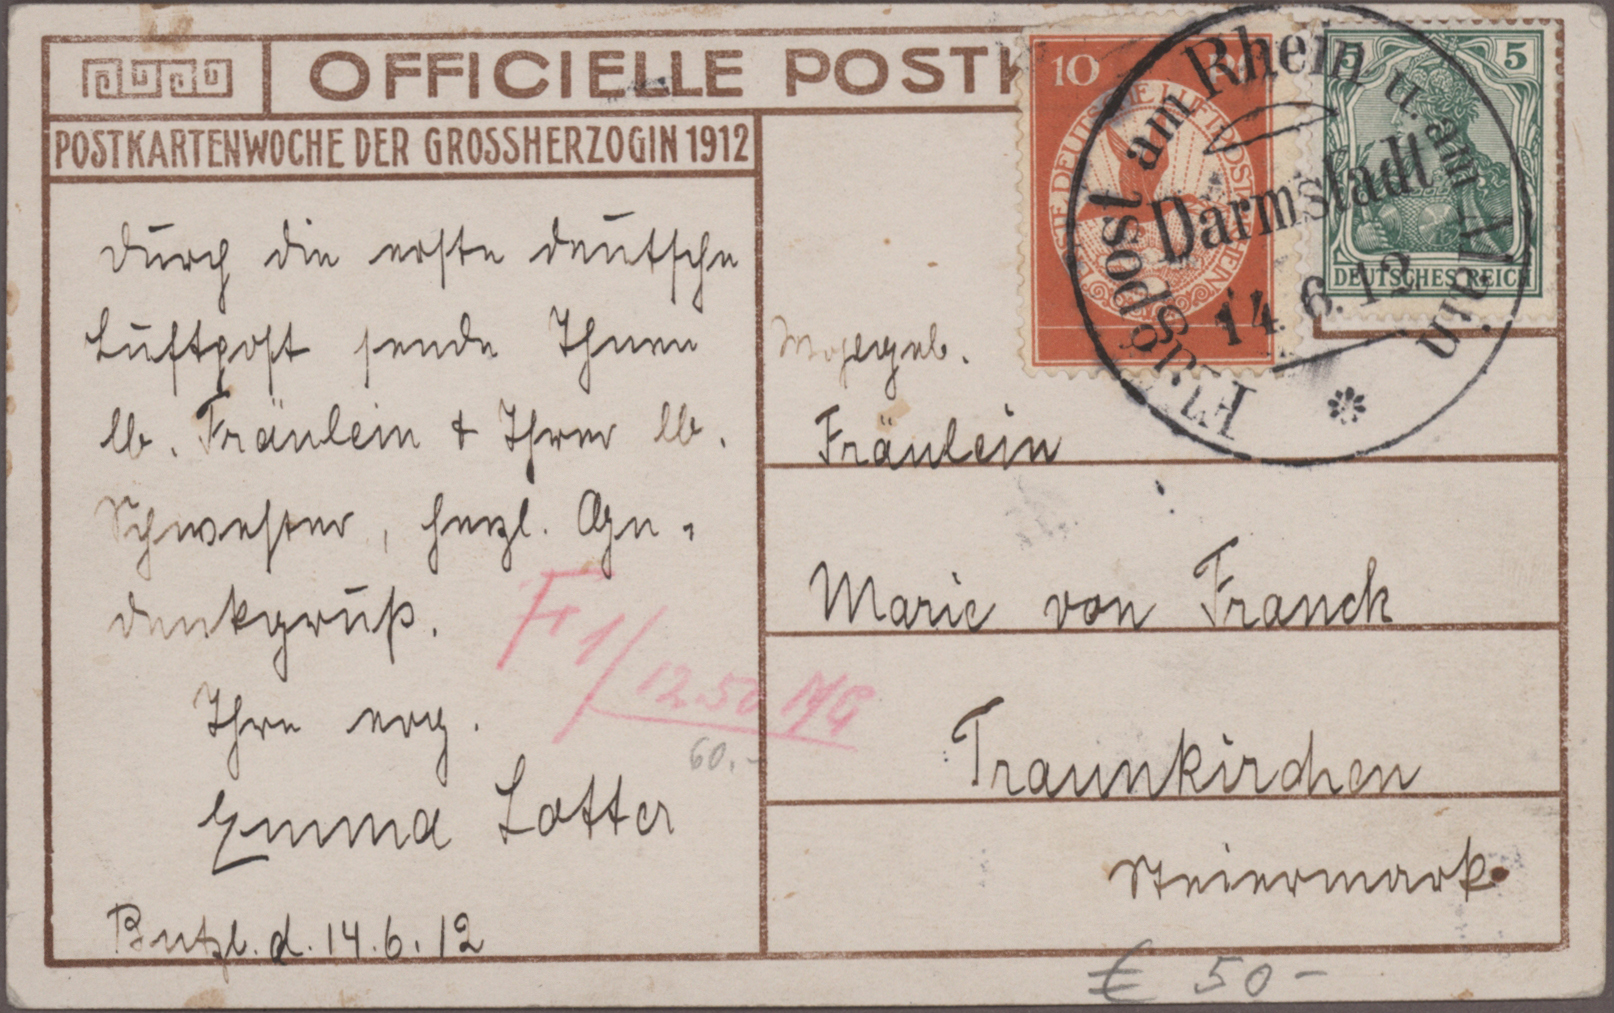 OFFICIELLE POSTK
POSTKARTENWOCHE DER GROSSHERZOGIN 1912
10
5 5
DEUTSCHES REICH
Flugpost am Rhein u. am Main
Darmstadt
14.6.12
Durch die erste deutsche
Luftpost sende Ihnen
lb. Fräulein + Ihrer lb.
Schwester, herzl. Ge-
denkgruß.
Ihre erg.
Emma Lotter
Butzb. d. 14.6.12
Fräulein
Marie von Franck
Traunkirchen
Steiermark
F 1/12.50
60.-
€ 50-